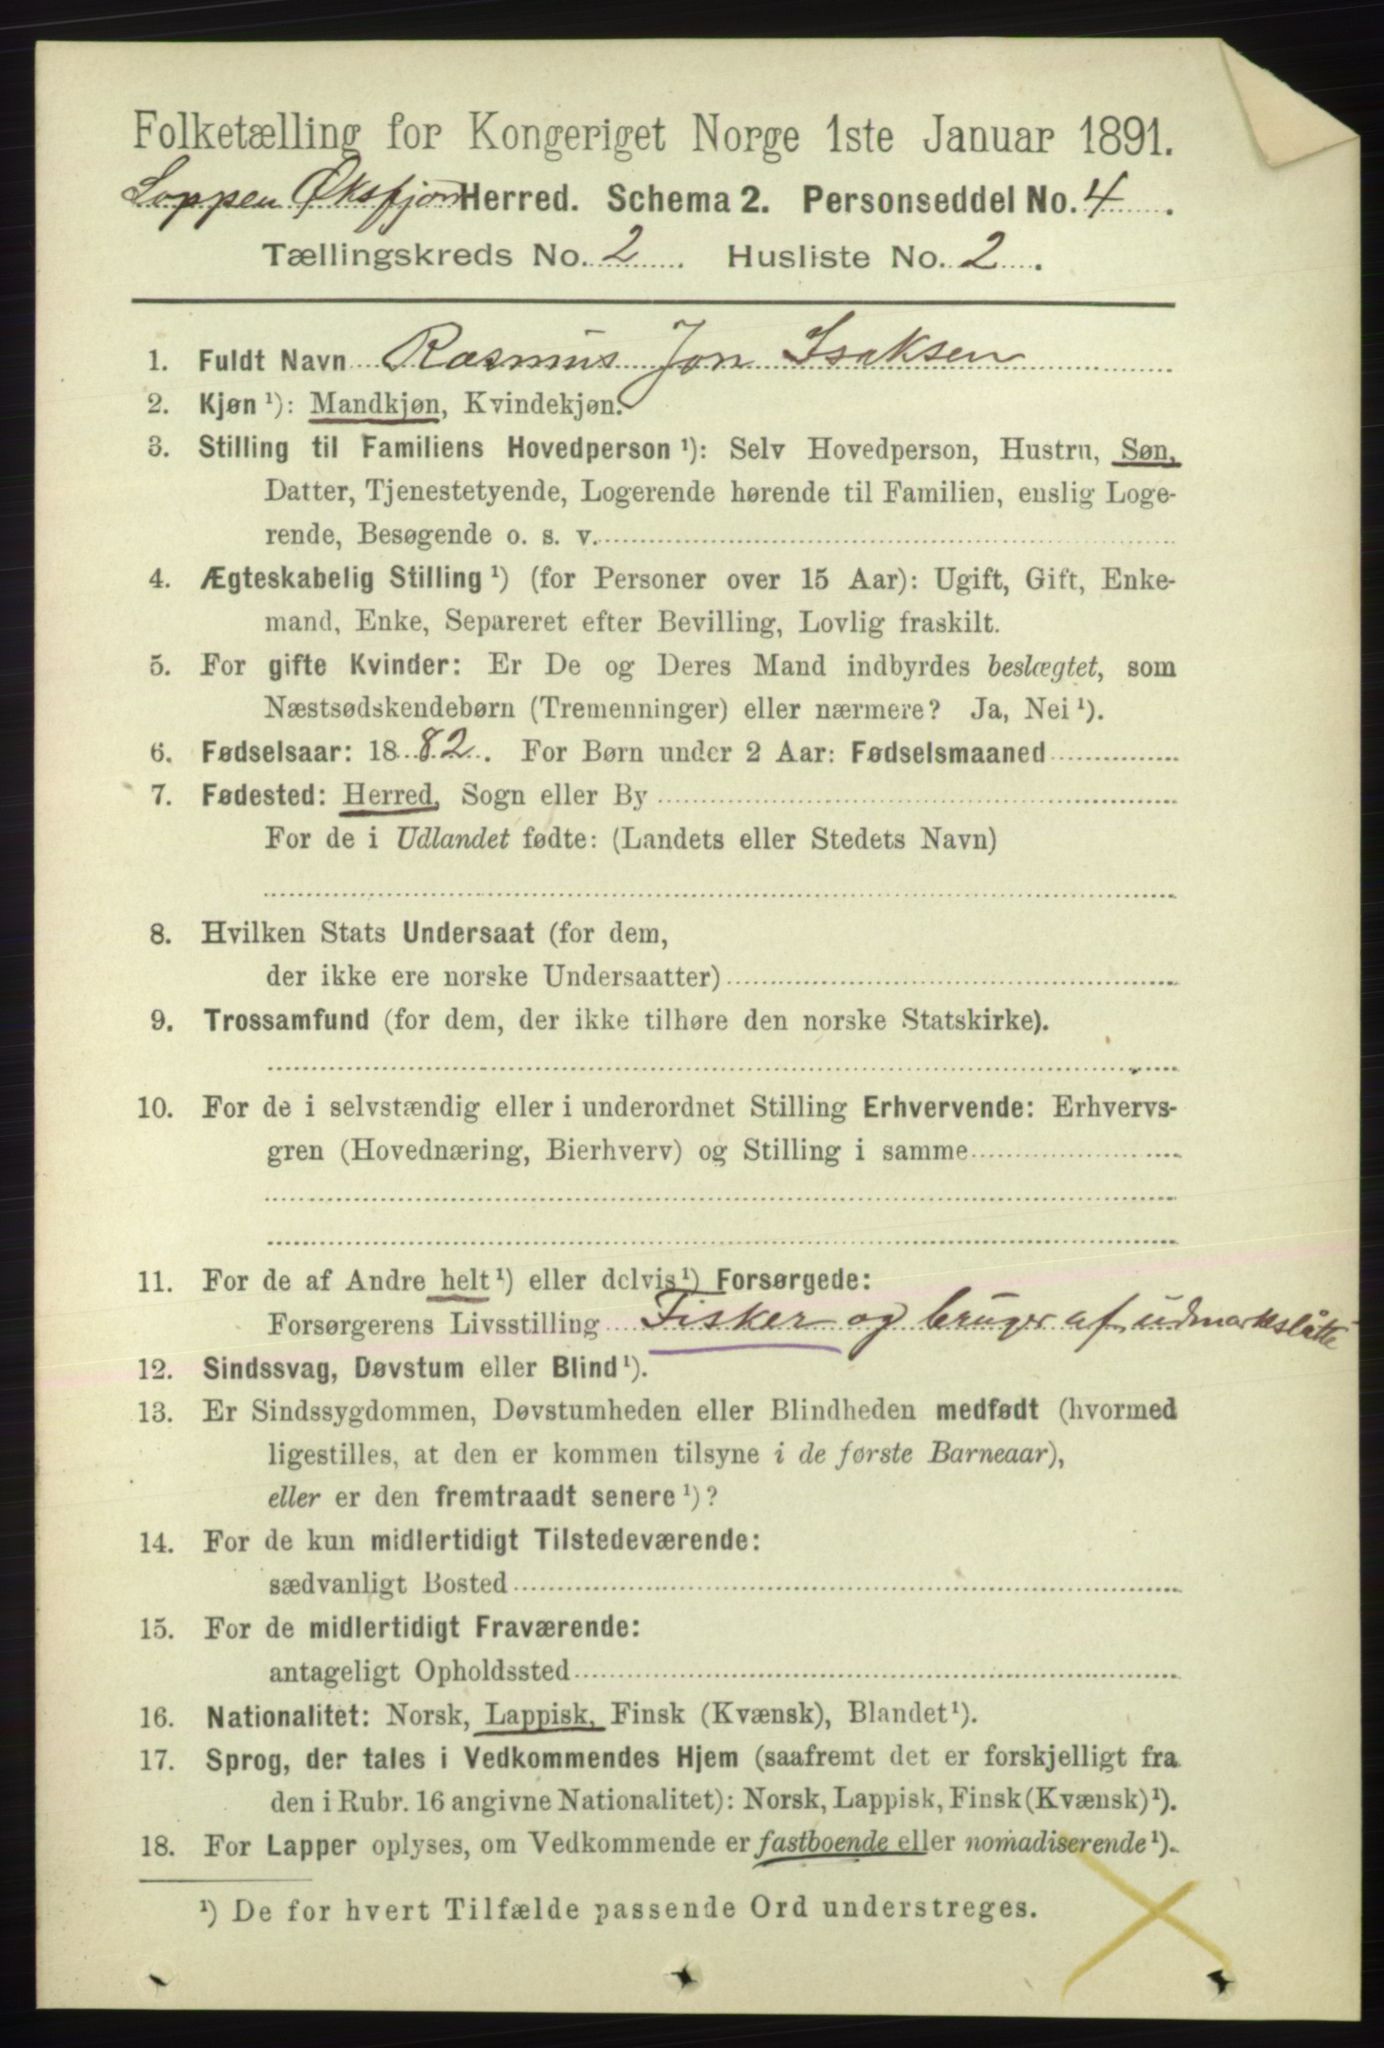 Folketælling for Kongeriget Norge 1ste Januar 1891.
Loppen Øksfjord Herred. Schema 2. Personseddel No. 4.
Tællingskreds No. 2. Husliste No. 2.
1. Fuldt Navn Rasmus Jon Isaksen
2. Kjøn ¹): Mandkjøn, Kvindekjøn.
3. Stilling til Familiens Hovedperson ¹): Selv Hovedperson, Hustru, Søn,
Datter, Tjenestetyende, Logerende hørende til Familien, enslig Loge-
rende, Besøgende o. s. v.
4. Ægteskabelig Stilling ¹) (for Personer over 15 Aar): Ugift, Gift, Enke-
mand, Enke, Separeret efter Bevilling, Lovlig fraskilt.
5. For gifte Kvinder: Er De og Deres Mand indbyrdes beslægtet, som
Næstsødskendebørn (Tremenninger) eller nærmere? Ja, Nei ¹).
6. Fødselsaar: 1882. For Børn under 2 Aar: Fødselsmaaned
7. Fødested: Herred, Sogn eller By
For de i Udlandet fødte: (Landets eller Stedets Navn)
8. Hvilken Stats Undersaat (for dem,
der ikke ere norske Undersaatter)
9. Trossamfund (for dem, der ikke tilhøre den norske Statskirke).
10. For de i selvstændig eller i underordnet Stilling Erhvervende: Erhvervs-
gren (Hovednæring, Bierhverv) og Stilling i samme
11. For de af Andre helt ¹) eller delvis ¹) Forsørgede:
Forsørgerens Livsstilling Fisker og bruger af udmarkslåtte
12. Sindssvag, Døvstum eller Blind ¹).
13. Er Sindssygdommen, Døvstumheden eller Blindheden medfødt (hvormed
ligestilles, at den er kommen tilsyne i de første Barneaar),
eller er den fremtraadt senere ¹)?
14. For de kun midlertidigt Tilstedeværende:
sædvanligt Bosted
15. For de midlertidigt Fraværende:
antageligt Opholdssted
16. Nationalitet: Norsk, Lappisk, Finsk (Kvænsk), Blandet ¹).
17. Sprog, der tales i Vedkommendes Hjem (saafremt det er forskjelligt fra
den i Rubr. 16 angivne Nationalitet): Norsk, Lappisk, Finsk (Kvænsk) ¹).
18. For Lapper oplyses, om Vedkommende er fastboende eller nomadiserende ¹).
¹) De for hvert Tilfælde passende Ord understreges.